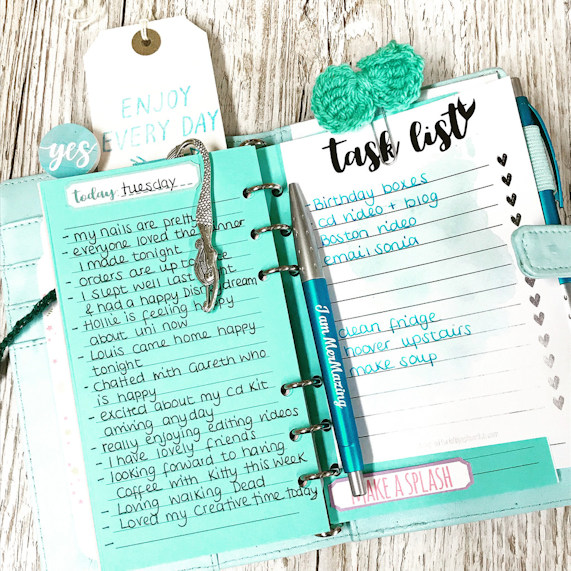 ENJOY
EVERY DAY
yes
today tuesday
- my nails are pretty
- everyone loved the dinner
I made tonight
- orders are up to
- I slept well last night
& had a happy Disney dream
- Hollie is feeling happy
about uni now
- Louis came home happy
tonight
- chatted with Gareth who
is happy
- excited about my cd kit
arriving anyday
- really enjoying editing videos
- I have lovely friends
- looking forward to having
coffee with Kitty this week
- Loving walking Dead
- Loved my Creative time today
task list
Birthday boxes
cd video + blog
Boston video
email sonia
clean fridge
hoover upstairs
make soup
I am MerMazing
MAKE A SPLASH